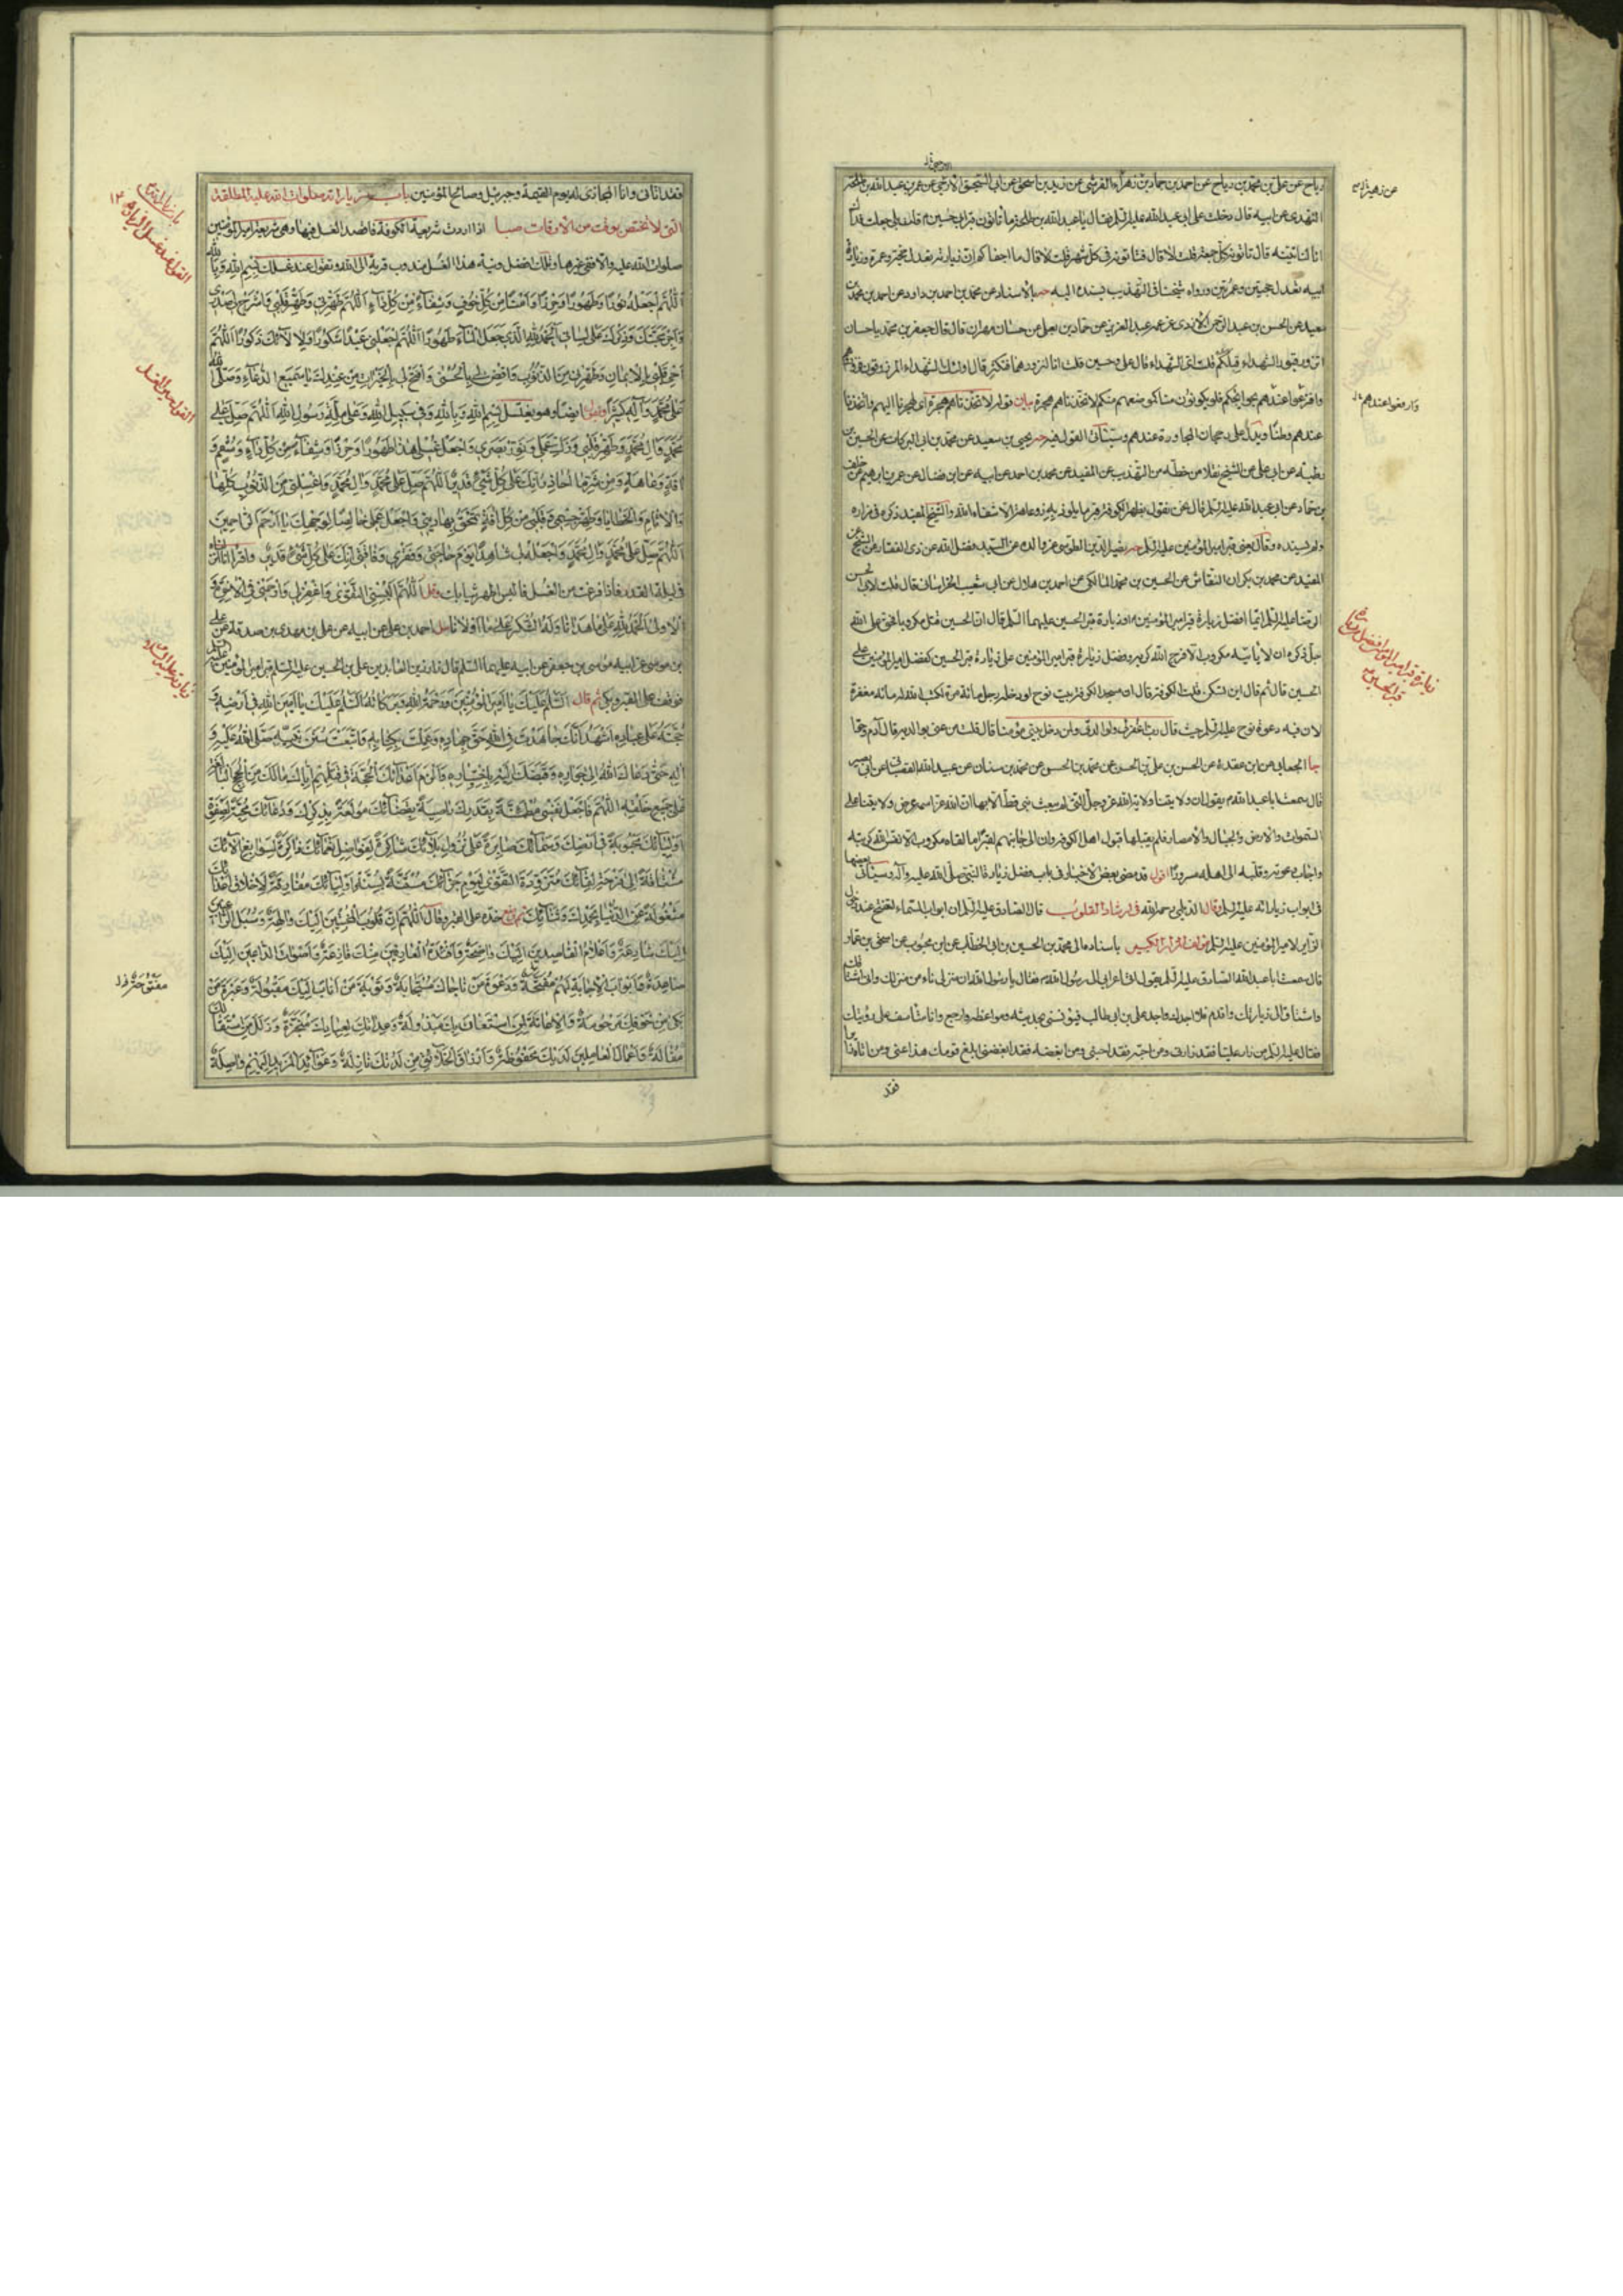 رياح عن علي بن محمد بن رياح عن احمد بن حماد بن زهير القرشي عن زيد بن اسحق عن ابي السخين الارجني عن عمر بن عبد الله بن طلحة
النهدي عن ابيه قال دخلت على ابي عبد الله عليه السلم فقال يا عبد الله بن طلحة ما تاتون قبر ابي حسين قلت بلى جعلت فداك
انا لناتيه قال تاتونه كل جمعة قلت لا قال فتاتونه في كل شهر قلت لا قال ما اجفاكم ان زيارته تعدل حجة وعمرة وزيارة
ابيه تعدل حجتين وعمرتين ورواه شيخنا في التهذيب يسنده اليه بالاسناد عن محمد بن احمد بن داود عن احمد بن محمد بن
سعيد عن الحسن بن عبد الرحمن الازدي عن عمه عبد العزيز عن حماد بن يعلى عن حسان مهران قال قال جعفر بن محمد يا حسان
اتزور قبور الشهداء قبلكم قلت اي الشهداء قال علي وحسين قلت انا لنزورهما فنكثر قال اولئك الشهداء المرزوقون فزوروهم
وافزعوا عندهم بحوائجكم فلو يكونون منا كموضعهم منكم لاتخذناهم هجرة بيان قوله لاتخذناهم هجرة اي لهجرنا اليهم واتخذنا
عندهم وطنا ويدل على رجحان المجاورة عندهم وسياتي القول فيه يحيى بن سعيد عن محمد بن ابي البركات عن الحسين بن
رطبة عن ابي علي عن الشيخ نقلا من خطه من التهذيب عن المفيد عن محمد بن احمد عن ابيه عن ابن فضال عن عمر بن ابرهيم عن خلف
بن حماد عن ابي عبد الله عليه السلم قال نحن نقول بظهر الكوفة قبر ما يلوذ به ذو عاهة الا شفاه الله والشيخ المفيد ذكره في مزاره
ولم يسنده وقال يعني قبر امير المؤمنين عليه السلم نصير الدين الطوسي عن والده عن السيد فضل الله عن ذي الفقار عن الشيخ عن
المفيد عن محمد بن بكران النقاش عن الحسين بن محمد المالكي عن احمد بن هلال عن ابي شعيب الخراساني قال قلت لابي الحسن
الرضا عليه السلم ايما افضل زيارة قبر امير المؤمنين او زيارة قبر الحسين عليهما السلم قال ان الحسين قتل مكروبا فحق على الله
جل ذكره ان لا ياتيه مكروب الا فرج الله كربه وفضل زيارة قبر امير المؤمنين على زيارة قبر الحسين كفضل امير المؤمنين على
الحسين قال ثم قال اين تسكن قلت الكوفة قال ان مسجد الكوفة بيت نوح لو دخله رجل مائة مرة لكتب الله له مائة مغفرة
لان فيه دعوة نوح عليه السلم حيث قال رب اغفر لي ولوالدي ولمن دخل بيتي مؤمنا قال قلت من عنى بوالديه قال آدم وحوا
جا الجعابي عن ابن عقدة عن الحسن بن علي بن الحسن عن محمد بن الحسن عن محمد بن سنان عن عبيد الله القصباني عن ابي بصير
قال سمعت ابا عبد الله يقول ان ولايتنا ولاية الله عز وجل التي لم يبعث نبي قط الا بها ان الله عز اسمه عرض ولايتنا على
السموات والارض والجبال والامصار فلم يقبلها قبول اهل الكوفة وان الى جانبهم لقبرا ما لقاه مكروب الا نفس الله كربته
واجاب دعوته وقلبه الى اهله مسرورا اقول قد مضى بعض الاخبار في باب فضل زيارة النبي صلى الله عليه وآله وسياتي بعضها
في ابواب زياراته عليه السلم وقال الديلمي رحمه الله في ارشاد القلوب قال الصادق عليه السلم ان ابواب السماء لتفتح عند دخول
الزاير لامير المؤمنين عليه السلم مؤلف المزار الكبير باسناده الى محمد بن الحسين بن ابي الخطاب عن ابن محبوب عن اسحق بن عمار
قال سمعت ابا عبد الله الصادق عليه السلم يقول اتى اعرابي الى رسول الله فقال يا رسول الله ان منزلي ناء من منزلك واني اشتاقك
واشتاق الى زيارتك واقدم فلا اجدك واجد علي بن ابي طالب فيونسني بحديثه ومواعظه وارجع وانا متاسف على رؤيتك
فقال عليه السلم من زار عليا فقد زارني ومن احبه فقد احبني ومن ابغضه فقد ابغضني ابلغ قومك هذا عني ومن اتاه زائرا
فقد
زيارة قبر امير المؤمنين افضل من زيارة
قبر الحسين
فقد اتاني وانا المجازي له يوم القيمة وجبرئيل وصالح المؤمنين باب زياراته صلوات الله عليه المطلقة
التي لا تختص بوقت من الاوقات صبا اذا اردت شريعة الكوفة فاقصد الغسل فيها وهي شريعة امير المؤمنين
صلوات الله عليه والا ففي غيرها وتلك افضل ونية هذا الغسل مندوب قربة الى الله وتقول عند غسلك بسم الله وبالله
اللهم اجعله نورا وطهورا وحرزا وامنا من كل خوف وشفاء من كل داء اللهم طهرني وطهر قلبي واشرح لي صدري
واجر محبتك وذكرك على لساني الحمد لله الذي جعل الماء طهورا اللهم اجعلني عبدا شكورا ولالائك ذكورا اللهم
احي قلبي بالايمان وطهرني من الذنوب واقض لي بالحسنى وافتح لي بالخيرات من عندك يا سميع الدعاء وصلى الله
على محمد وآله كثيرا وتقول ايضا وهو يغتسل بسم الله وبالله وفي سبيل الله وعلى ملة رسول الله اللهم صل على
محمد وآل محمد وطهر قلبي وزك عملي ونور بصري واجعل غسلي هذا طهورا وحرزا وشفاء من كل داء وسقم و
آفة وعاهة ومن شر ما احاذر انك على كل شيء قدير اللهم صل على محمد وآل محمد واغسلني من الذنوب كلها
والآثام والخطايا وطهر جسمي وقلبي من كل آفة تمحق بها ديني واجعل عملي خالصا لوجهك يا ارحم الراحمين
اللهم صل على محمد وآل محمد واجعله لي شاهدا يوم حاجتي وفقري وفاقتي انك على كل شيء قدير واقرأ انا انزلناه
في ليلة القدر فاذا فرغت من الغسل فالبس اطهر ثيابك وقل اللهم البسني التقوى واغفر لي وارحمني في الآخرة و
الاولى الحمد لله على ما هدانا وله الشكر على ما اولانا احمد بن علي عن ابيه عن علي بن مهدي بن صدقة عن علي
بن موسى عن ابيه موسى بن جعفر عن ابيه عليهما السلم قال زار زين العابدين علي بن الحسين عليه السلم قبر امير المؤمنين عليه السلم
فوقف على القبر وبكى ثم قال السلم عليك يا امير المؤمنين ورحمة الله وبركاته السلم عليك يا امين الله في ارضه و
حجته على عباده اشهد انك جاهدت في الله حق جهاده وعملت بكتابه واتبعت سنن نبيه صلى الله عليه و
آله حتى دعاك الله الى جواره وقبضك اليه باختياره والزم اعداءك الحجة في قتلهم اياك مع ما لك من الحجج البالغة
على جميع خلقه اللهم فاجعل نفسي مطمئنة بقدرك راضية بقضائك مولعة بذكرك ودعائك محبة لصفوة
اوليائك محبوبة في ارضك وسمائك صابرة على نزول بلائك شاكرة لفواضل نعمائك ذاكرة لسوابغ آلائك
مشتاقة الى فرحة لقائك متزودة التقوى ليوم جزائك مستنة بسنن اوليائك مفارقة لاخلاق اعدائك
مشغولة عن الدنيا بحمدك وثنائك ثم وضع خده على القبر وقال اللهم ان قلوب المخبتين اليك والهة وسبل الراغبين
اليك شارعة واعلام القاصدين اليك واضحة وافئدة العارفين منك فازعة واصوات الداعين اليك
صاعدة وابواب الاجابة لهم مفتحة ودعوة من ناجاك مستجابة وتوبة من اناب اليك مقبولة وعبرة من
بكى من خوفك مرحومة والاغاثة لمن استغاث بك مبذولة وعداتك لعبادك منجزة وزلل من استقالك
مقالة واعمال العاملين لديك محفوظة وارزاق الخلائق من لدنك نازلة وعوائد المزيد اليهم واصلة